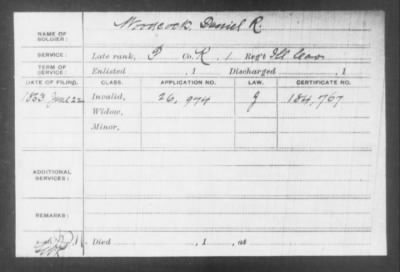 NAME OF SOLDIER: Woodcock, Daniel R.
SERVICE: Late rank, P Co. K, 1 Reg't Ill Cav
TERM OF SERVICE: Enlisted , 1 Discharged , 1
DATE OF FILING. CLASS. APPLICATION NO. LAW. CERTIFICATE NO.
1863 June 22 Invalid, 26,974 J 184,767
Widow,
Minor,
ADDITIONAL SERVICES:
REMARKS:
Died , 1 , at